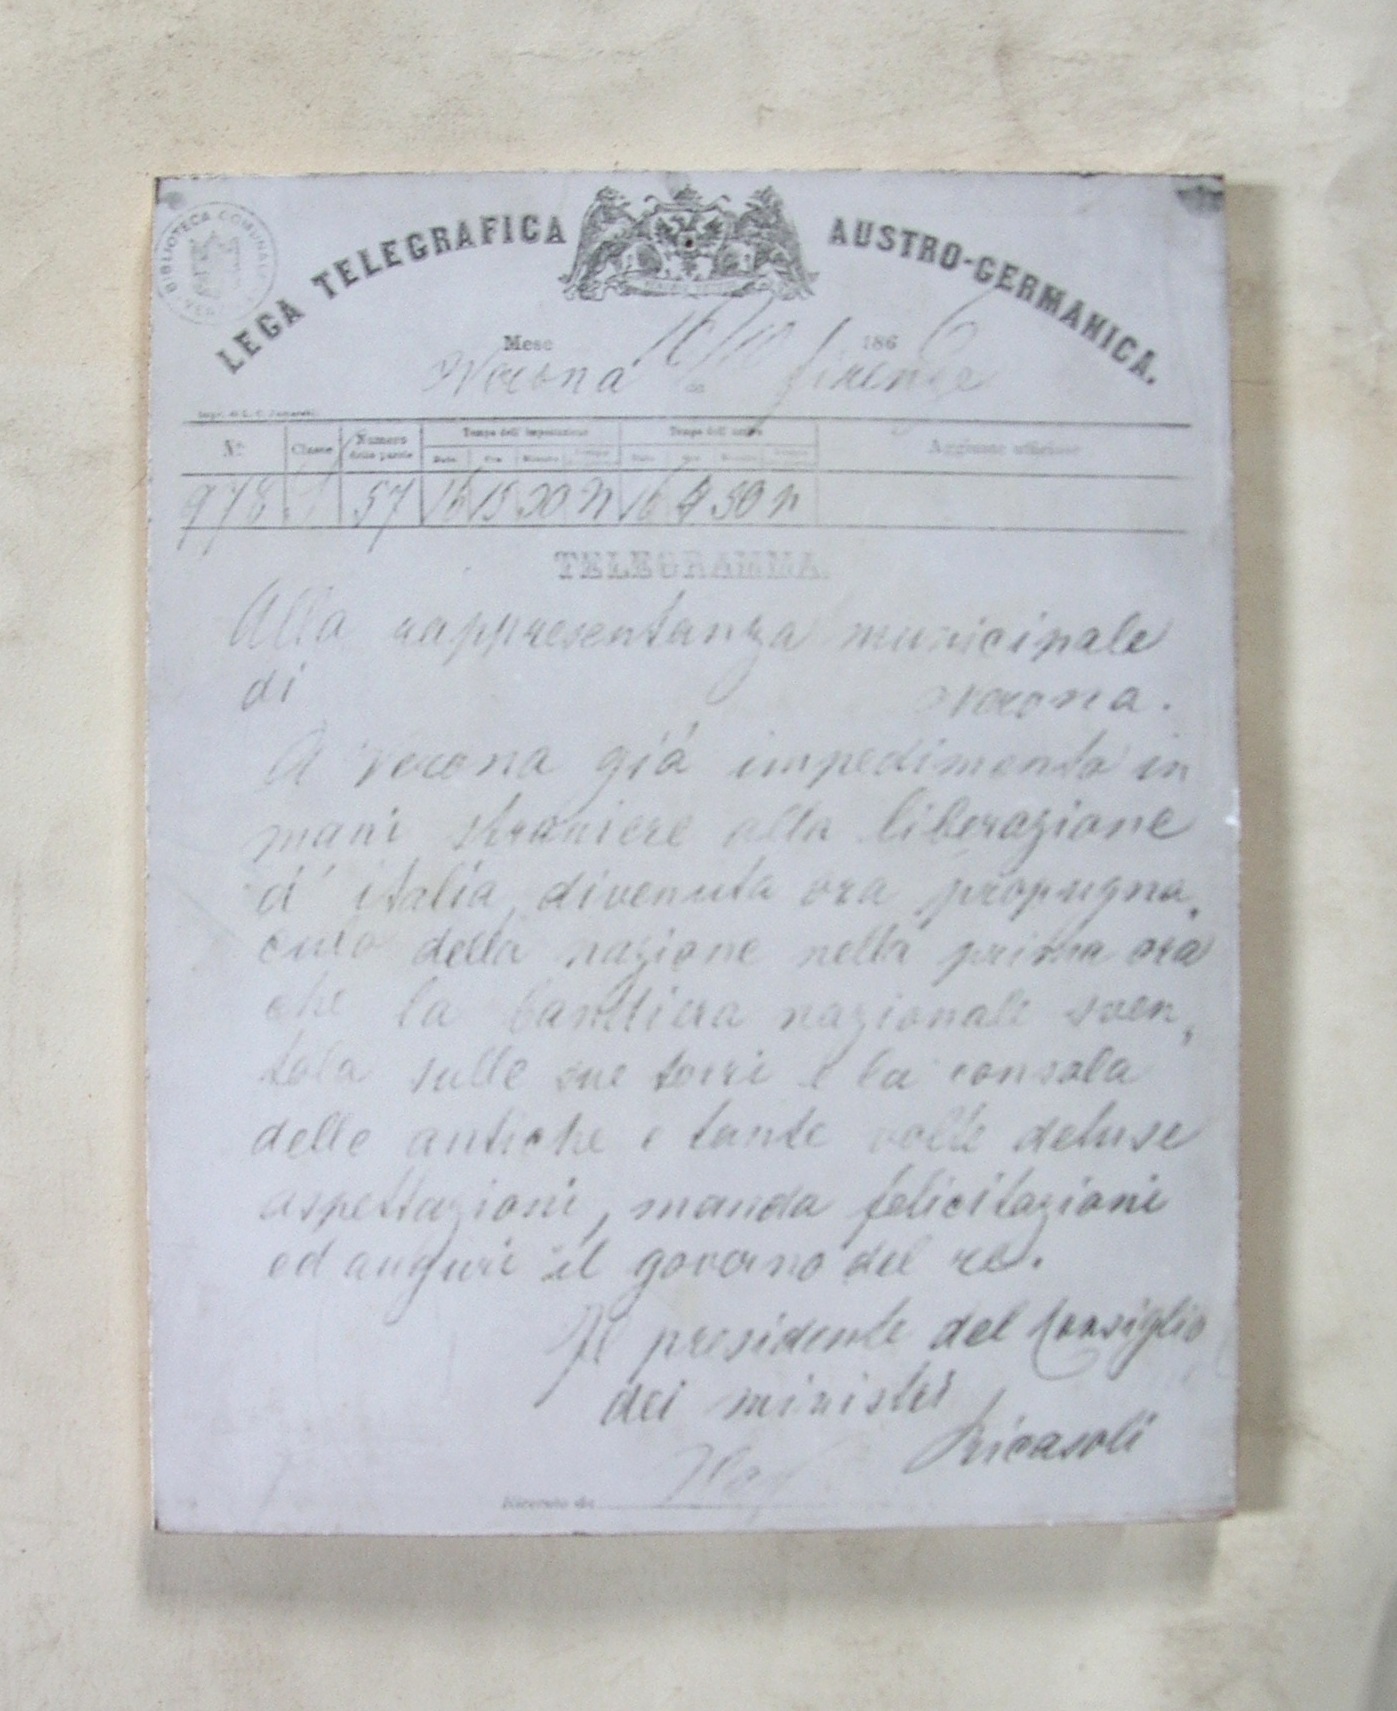 LEGA TELEGRAFICA AUSTRO-GERMANICA.
BIBLIOTECA COMUNALE
Mese 16/10 1866
Verona da Firenze
N.° Classe Numero delle parole Tempo dell' impostazione Tempo dell' arrivo Aggiunte ufficiose
Data Ora Minuto Data Ora Minuto
978 57 16 15 30 n 16 4 50 n
TELEGRAMMA.
Alla rappresentanza municipale
di Verona.
A Verona già impedimento in
mani straniere alla liberazione
d' italia, divenuta ora propugna,
culo della nazione nella prima ora
che la bandiera nazionale sven,
tola sulle sue torri e la consola
delle antiche e tante volte deluse
aspettazioni, manda felicitazioni
ed auguri il governo del re.
Il presidente del Consiglio
dei ministri
Ricasoli
Ricevuto da